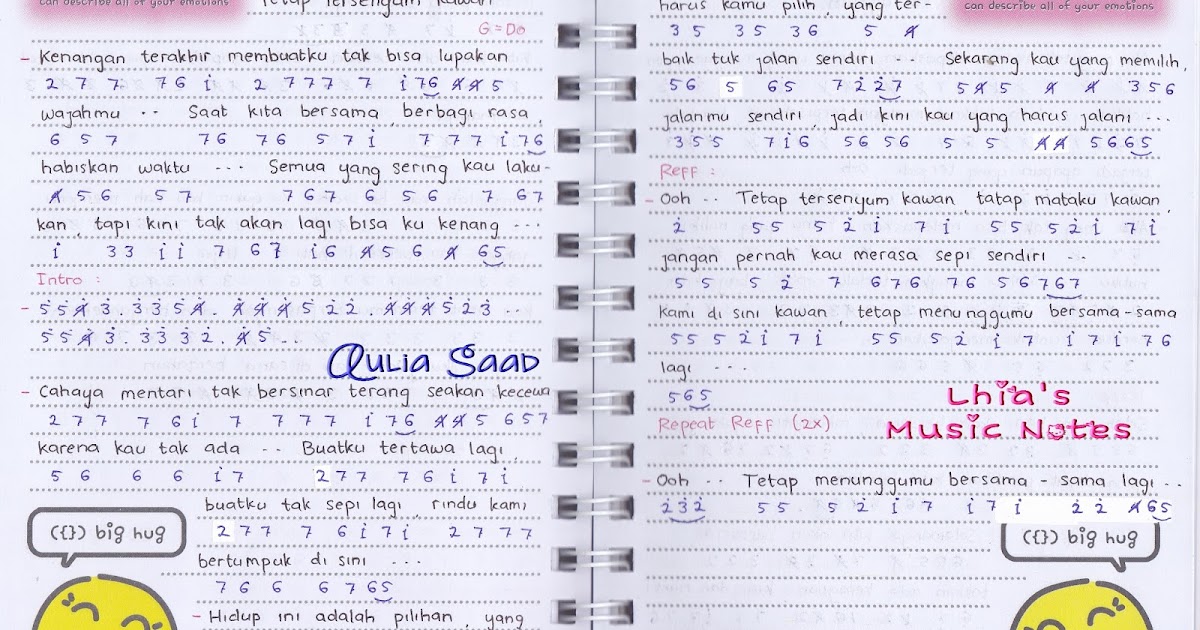 can describe all of your emotions
Tetap Tersenyum Kawan
G = Do
- Kenangan terakhir membuatku tak bisa lupakan
2 7 7 7 6 1̇ 2 7 7 7 7 1̇ 7 6 4̸ 4̸ 5
wajahmu .. Saat kita bersama, berbagi rasa,
6 5 7 7 6 7 6 5 7 1̇ 7 7 7 1̇ 7 6
habiskan waktu ... Semua yang sering kau laku-
4̸ 5 6 5 7 7 6 7 6 5 6 7 6 7
kan, tapi kini tak akan lagi bisa ku kenang ...
1̇ 3 3 1̇ 1̇ 7 6 7 1̇ 6 4̸ 5 6 4̸ 6 5
Intro :
- 5̇ 5̇ 4̸̇ 3̇ . 3̇ 3̇ 5̇ 4̸̇ . 4̸̇ 4̸̇ 4̸̇ 5̇ 2̇ 2̇ . 4̸̇ 4̸̇ 4̸̇ 5̇ 2̇ 3̇ ..
5̇ 5̇ 4̸̇ 3̇ . 3̇ 3̇ 3̇ 2̇ . 4̸̇ 5̇ ...
Qulia Saad
- Cahaya mentari tak bersinar terang seakan kecewa
2 7 7 7 6 1̇ 7 7 7 7 1̇ 7 6 4̸ 4̸ 5 6 5 7
karena kau tak ada .. Buatku tertawa lagi,
5 6 6 6 1̇ 7 2 7 7 7 6 1̇ 7 1̇
buatku tak sepi lagi, rindu kami
2 7 7 7 6 1̇ 7 1̇ 2 7 7 7
bertumpuk di sini ...
7 6 6 6 7 6 5
- Hidup ini adalah pilihan, yang
({}) big hug
harus kamu pilih, yang ter-
can describe all of your emotions
3 5 3 5 3 6 5 4̸
baik tuk jalan sendiri ... Sekarang kau yang memilih,
5 6 5 6 5 7 2̇ 2̇ 7 5 4̸ 5 4̸ 4̸ 3 5 6
jalanmu sendiri, jadi kini kau yang harus jalani ...
3 5 5 7 1̇ 6 5 6 5 6 5 5 4̸ 4̸ 5 6 6 5
Reff :
- Ooh .. Tetap tersenyum kawan, tatap mataku kawan,
2̇ 5 5 5 2̇ 1̇ 7 1̇ 5 5 5 2̇ 1̇ 7 1̇
jangan pernah kau merasa sepi sendiri ...
5 5 5 2̇ 7 6 7 6 7 6 5 6 7 6 7
kami di sini kawan, tetap menunggumu bersama-sama
5 5 5 2̇ 1̇ 7 1̇ 5 5 5 2̇ 1̇ 7 1̇ 7 1̇ 7 6
lagi ...
5 6 5
Lhia's
Music Notes
Repeat Reff (2x)
- Ooh .. Tetap menunggumu bersama - sama lagi ..
2̇ 3̇ 2̇ 5 5 5 2̇ 1̇ 7 1̇ 7 1̇ 2̇ 2̇ 4̸ 6 5
({}) big hug